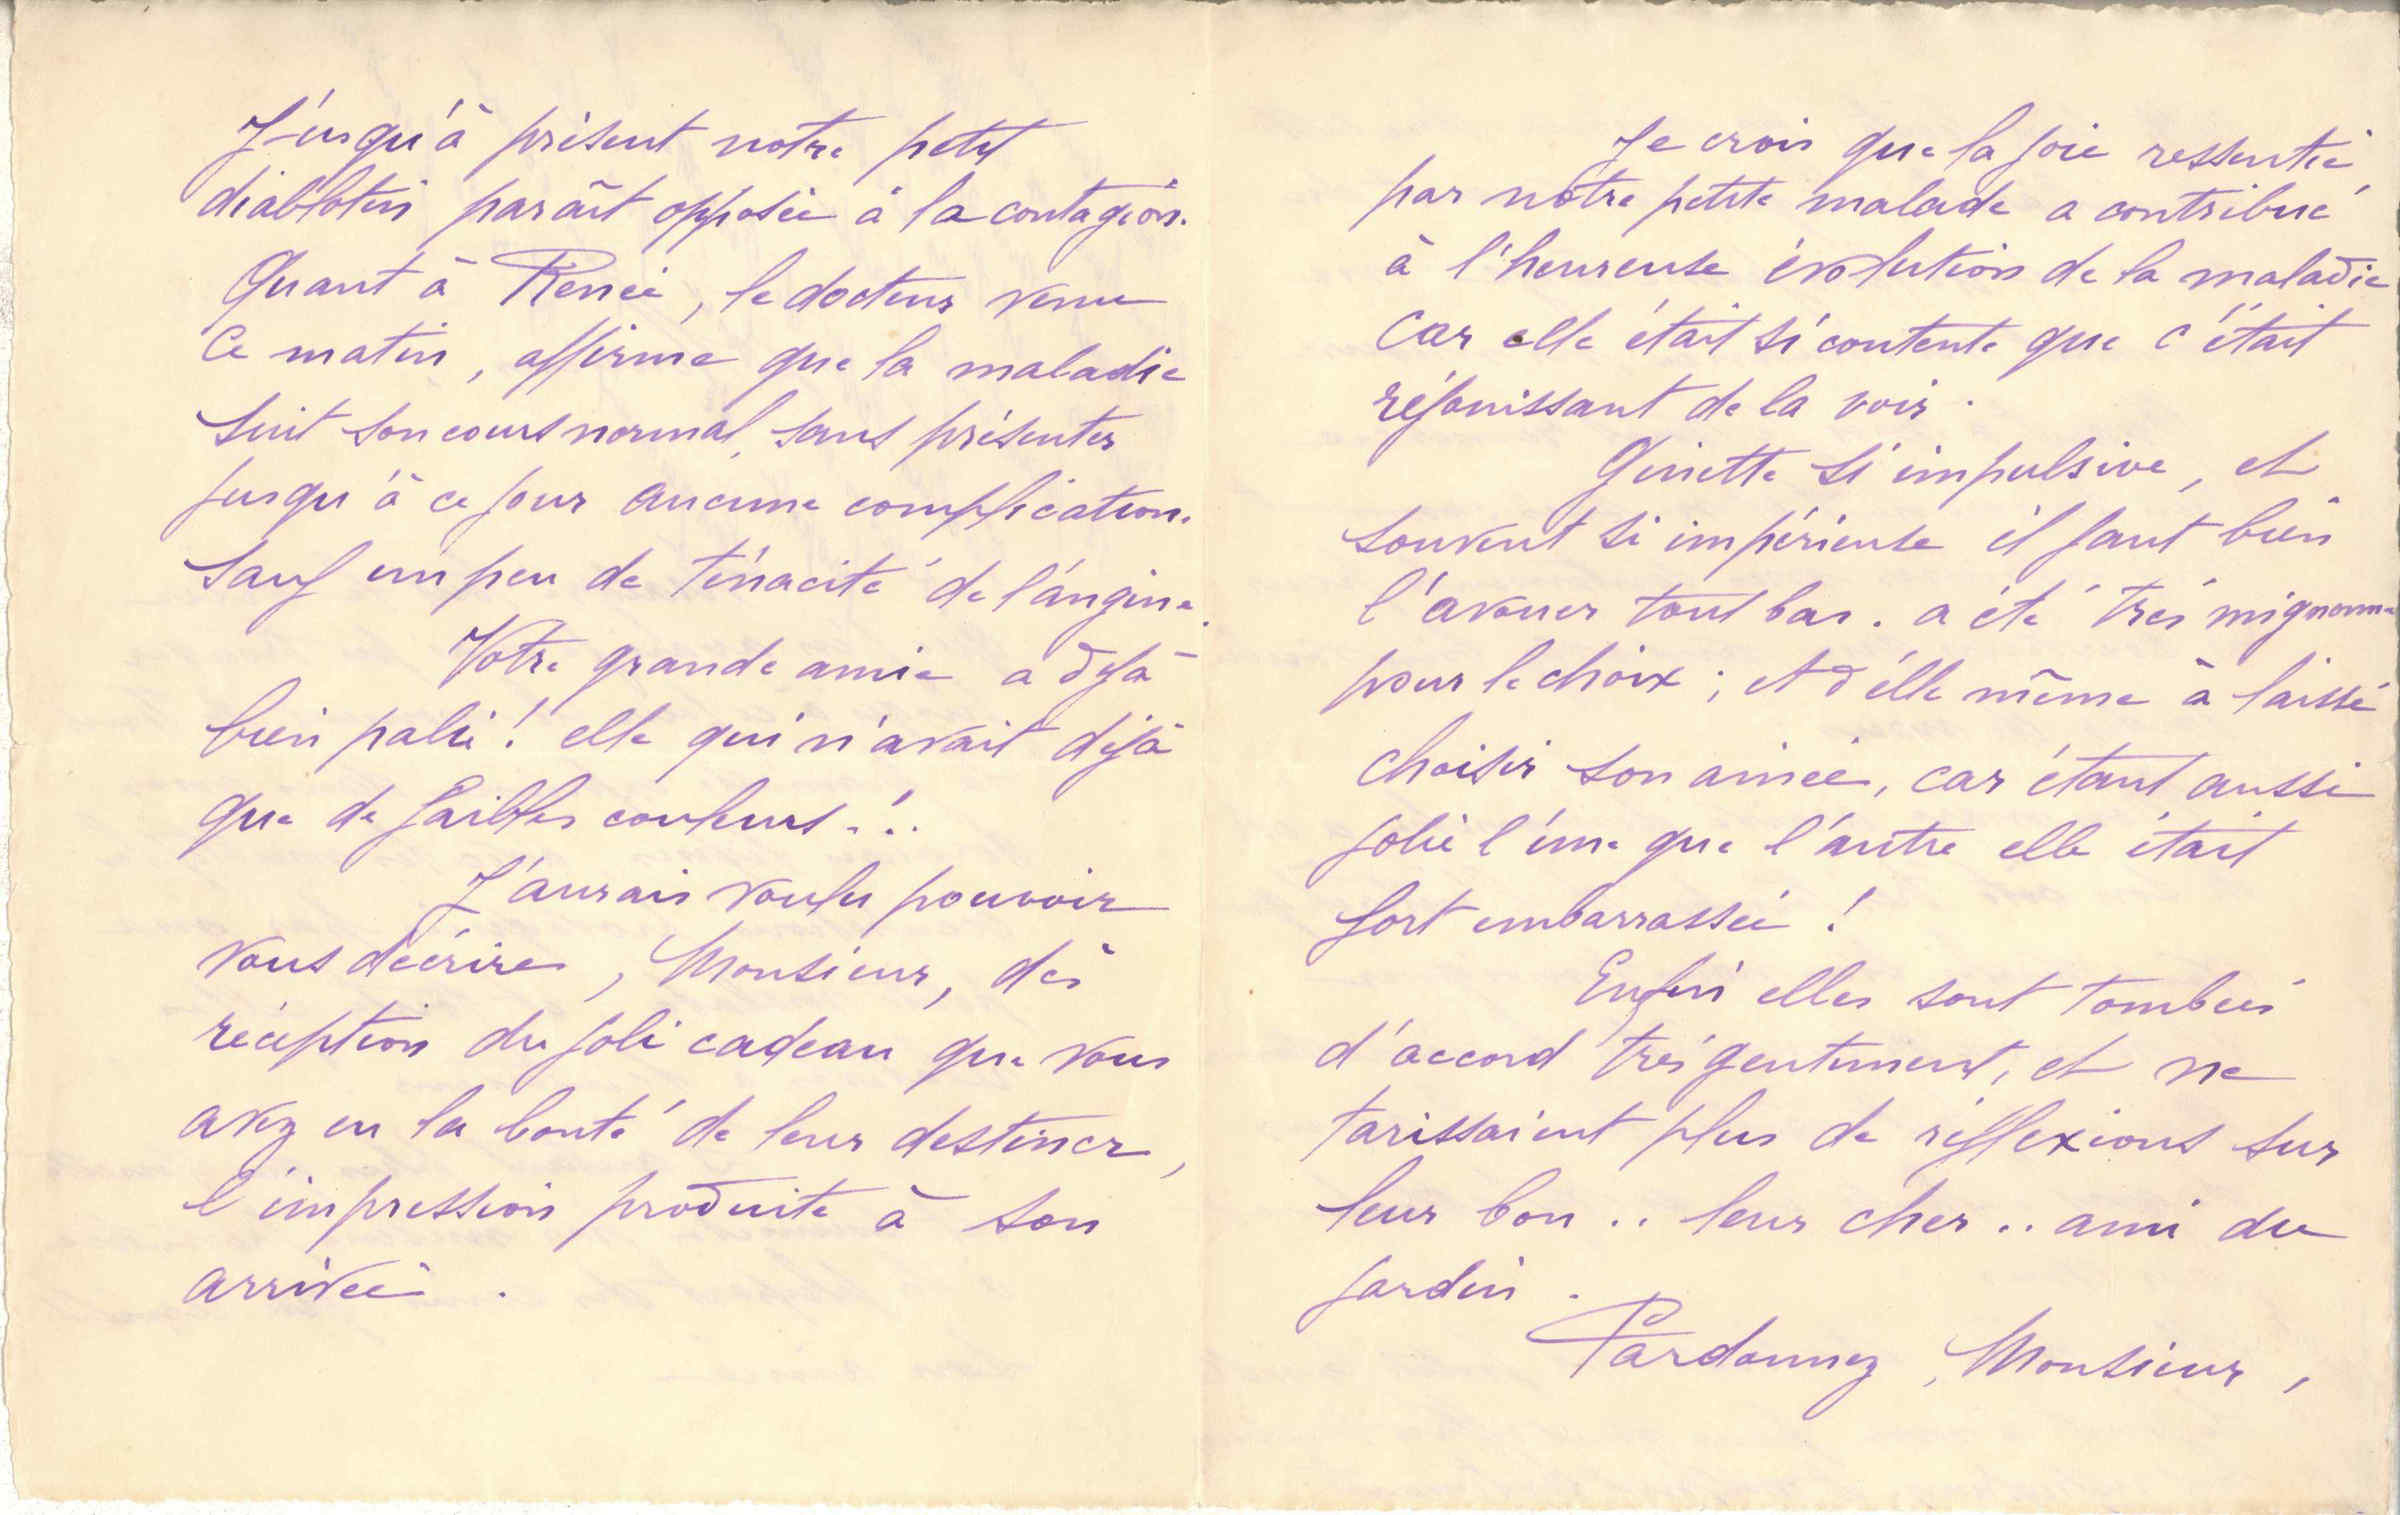 Jusqu'à présent notre petit
diablotin paraît opposée à la contagion.
Quant à Renée, le docteur venu
ce matin, affirme que la maladie
suit son cours normal, sans présenter
jusqu'à ce jour aucune complication.
sauf un peu de ténacité de l'angine.
Votre grande amie a déjà
bien pali ! elle qui n'avait déjà
que de faibles couleurs . ! .
J'aurais voulu pouvoir
vous décrire, Monsieur, dès
réception du joli cadeau que vous
avez eu la bonté de leur destiner,
l'impression produite à son
arrivée .
Je crois que la joie ressentie
par notre petite malade a contribué
à l'heureuse évolution de la maladie
car elle était si contente que c'était
réjouissant de la voir .
Ginette si impulsive, et
souvent si impérieuse il faut bien
l'avouer tout bas . a été très mignonne
pour le choix ; et d'elle même à laissé
choisir son ainée, car étant aussi
jolie l'une que l'autre elle était
fort embarrassée !
Enfin elles sont tombées
d'accord très gentiment, et ne
tarissaient plus de réflexions sur
leur bon .. leur cher .. ami du
jardin .
Pardonnez, Monsieur,